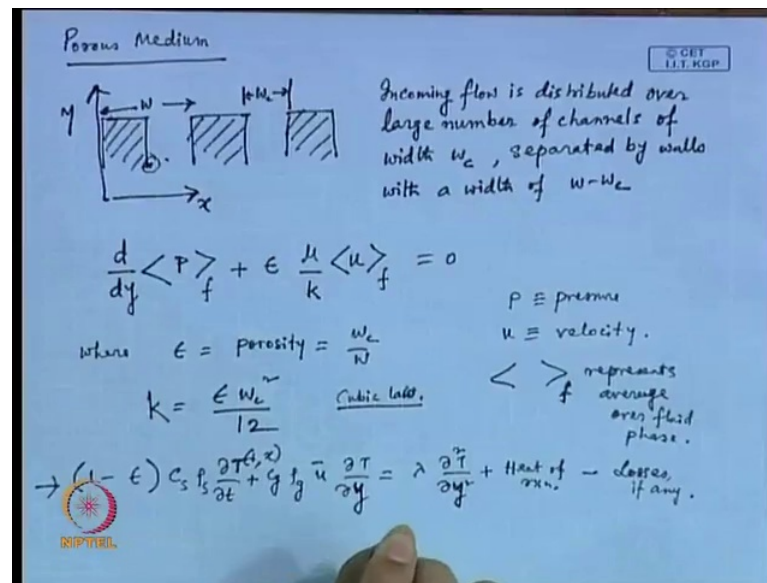 Porous Medium
© CET
I.I.T. KGP
y
W
Wc
x
Incoming flow is distributed over
large number of channels of
width wc, separated by walls
with a width of w-wc
d/dy <P>f + ε μ/k <u>f = 0
P ≡ pressure
u ≡ velocity.
where ε = porosity = wc/W
< >f represents
average
over fluid
phase.
k = ε wc²/12 Cubic law.
→ (1 - ε) Cs ρs ∂T/∂t + Cg ρg ū ∂T/∂y = λ ∂²T/∂y² + Heat of rxn. - Losses, if any.
NPTEL